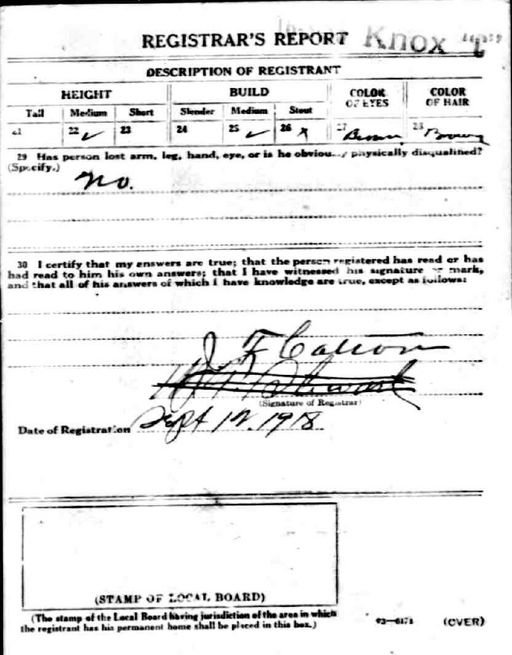 REGISTRAR'S REPORT Knox
DESCRIPTION OF REGISTRANT
HEIGHT BUILD COLOR OF EYES COLOR OF HAIR
Tall Medium Short Slender Medium Stout
21 22 ✓ 23 24 25 ✓ 26 x 27 Brown 28 Brown
29 Has person lost arm, leg, hand, eye, or is he obviously physically disqualified?
(Specify.)
No.
30 I certify that my answers are true; that the person registered has read or has
had read to him his own answers; that I have witnessed his signature or mark,
and that all of his answers of which I have knowledge are true, except as follows:
J F
Stewart
(Signature of Registrar)
Date of Registration Sept 12, 1918
(STAMP OF LOCAL BOARD)
(The stamp of the Local Board having jurisdiction of the area in which
the registrant has his permanent home shall be placed in this box.)
03—6171 (OVER)